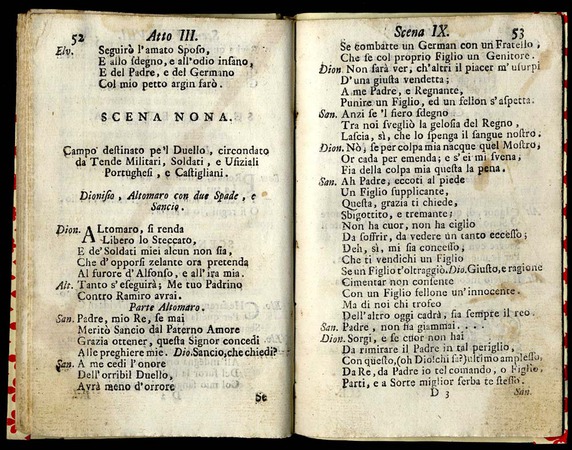 52 Atto III.
Elv. Seguirò l'amato Sposo,
E allo sdegno, e all'odio insano,
E del Padre, e del Germano
Col mio petto argin farò.
SCENA NONA.
Campo destinato pe'l Duello, circondato
da Tende Militari, Soldati, e Ufiziali
Portughesi, e Castigliani.
Dionisio, Altomaro con due Spade, e
Sancio.
Dion. ALtomaro, si renda
Libero lo Steccato,
E de' Soldati miei alcun non sia,
Che d'opporsi zelante ora pretenda
Al furore d'Alfonso, e all'ira mia.
Alt. Tanto s'eseguirà; Me tuo Padrino
Contro Ramiro avrai.
Parte Altomaro.
San. Padre, mio Re, se mai
Meritò Sancio dal Paterno Amore
Grazia ottener, questa Signor concedi
Alle preghiere mie. Dio. Sancio, che chiedi?
San. A me cedi l'onore
Dell'orribil Duello,
Avrà meno d'orrore
Se
Scena IX. 53
Se combatte un German con un Fratello,
Che se col proprio Figlio un Genitore.
Dion. Non farà ver, ch'altri il piacer m'usurpi
D'una giusta vendetta;
A me Padre, e Regnante,
Punire un Figlio, ed un fellon s'aspetta.
San. Anzi se 'l fiero sdegno
Tra noi svegliò la gelosia del Regno,
Lascia, sì, che lo spenga il sangue nostro.
Dion. Nò, se per colpa mia nacque quel Mostro,
Or cada per emenda; e s'ei mi svena,
Fia della colpa mia questa la pena.
San. Ah Padre, eccoti al piede
Un Figlio supplicante,
Questa, grazia ti chiede,
Sbigottito, e tremante;
Non ha cuor, non ha ciglio
Da soffrir, da vedere un tanto eccesso;
Deh, sì, mi sia concesso,
Che ti vendichi un Figlio
Se un Figlio t'oltraggiò. Dio. Giusto, e ragione
Cimentar non consente
Con un Figlio fellone un'innocente.
Ma di noi chi trofeo
Dell'altro oggi cadrà, sia sempre il reo.
San. Padre, non fia giammai....
Dion. Sorgi, e se cuor non hai
Da rimirare il Padre in tal periglio,
Con questo, (oh Dio! chi sa?) ultimo amplesso,
Da Re, da Padre io tel comando, o Figlio,
Parti, e a Sorte miglior serba te stesso.
D 3 San.